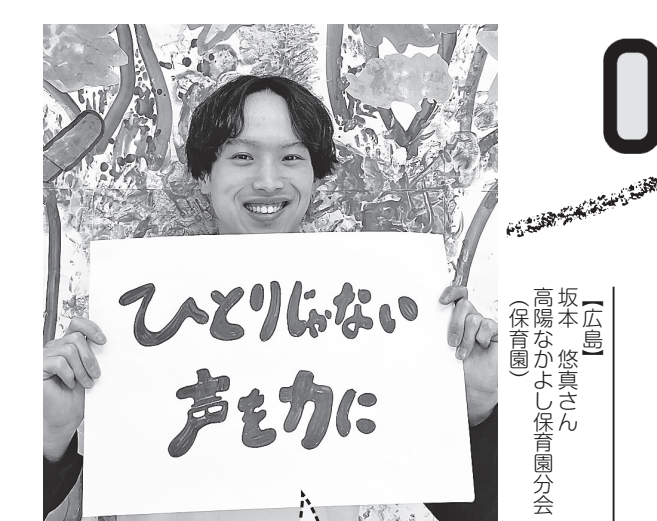 ひとりじゃない
声を力に
【広島】
坂本 悠真さん
高陽なかよし保育園分会
（保育園）